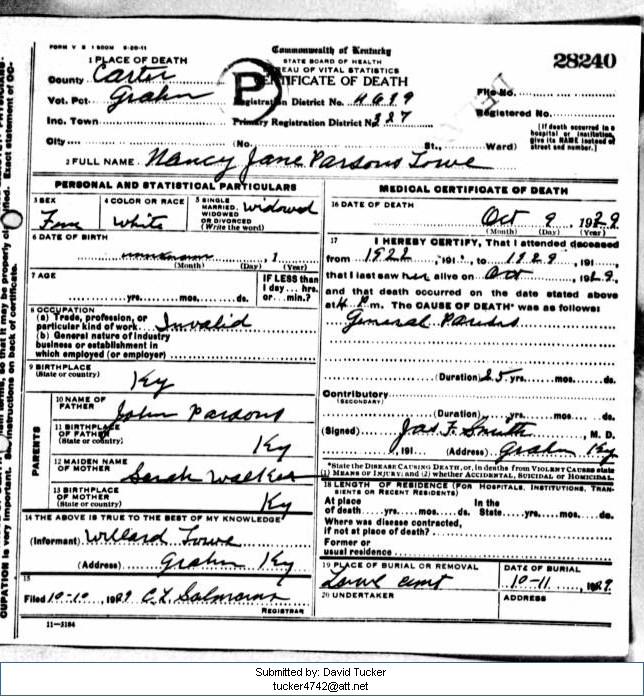 FORM V S 1 500M 5-20-11
Commonwealth of Kentucky
STATE BOARD OF HEALTH
BUREAU OF VITAL STATISTICS
CERTIFICATE OF DEATH
28240
1 PLACE OF DEATH
County Carter
Vot. Pct. Grahn
Inc. Town
City
P
Registration District No. 4619
Primary Registration District No. 327
File No.
Registered No.
(No. St., Ward)
[If death occurred in a hospital or institution, give its NAME instead of street and number.]
2 FULL NAME Nancy Jane Parsons Lowe
PERSONAL AND STATISTICAL PARTICULARS
3 SEX
Fem
4 COLOR OR RACE
White
5 SINGLE MARRIED, WIDOWED OR DIVORCED (Write the word)
Widowed
6 DATE OF BIRTH
unknown , 1
(Month) (Day) (Year)
7 AGE
yrs. mos. ds.
IF LESS than 1 day... hrs. or... min.?
8 OCCUPATION
(a) Trade, profession, or particular kind of work Invalid
(b) General nature of industry business or establishment in which employed (or employer)
9 BIRTHPLACE
(State or country)
Ky
PARENTS
10 NAME OF FATHER John Parsons
11 BIRTHPLACE OF FATHER (State or country) Ky
12 MAIDEN NAME OF MOTHER Sarah Walker
13 BIRTHPLACE OF MOTHER (State or country) Ky
14 THE ABOVE IS TRUE TO THE BEST OF MY KNOWLEDGE
(Informant) Willard Lowe
(Address) Grahn Ky
15
Filed 10-10, 1929 C. L.
REGISTRAR
11-3184
MEDICAL CERTIFICATE OF DEATH
16 DATE OF DEATH
Oct 9 , 1929
(Month) (Day) (Year)
17 I HEREBY CERTIFY, That I attended deceased
from 1922 , 191 , to 1929 , 191
that I last saw her alive on Oct , 1929,
and that death occurred on the date stated above
at 4 P m. The CAUSE OF DEATH* was as follows:
General
(Duration) 25 yrs. mos. ds.
Contributory
(SECONDARY)
(Duration) yrs. mos. ds.
(Signed) Jas. F. Smith , M. D.
, 191 (Address) Grahn Ky
*State the DISEASE CAUSING DEATH, or, in deaths from VIOLENT CAUSES state (1) MEANS OF INJURY; and (2) whether ACCIDENTAL, SUICIDAL or HOMICIDAL.
18 LENGTH OF RESIDENCE (FOR HOSPITALS, INSTITUTIONS, TRANSIENTS OR RECENT RESIDENTS)
At place of death yrs. mos. ds. In the State yrs. mos. ds.
Where was disease contracted, if not at place of death?
Former or usual residence
19 PLACE OF BURIAL OR REMOVAL
Lowe cmt
DATE OF BURIAL
10-11 , 1929
20 UNDERTAKER
ADDRESS
Submitted by: David Tucker
tucker4742@att.net